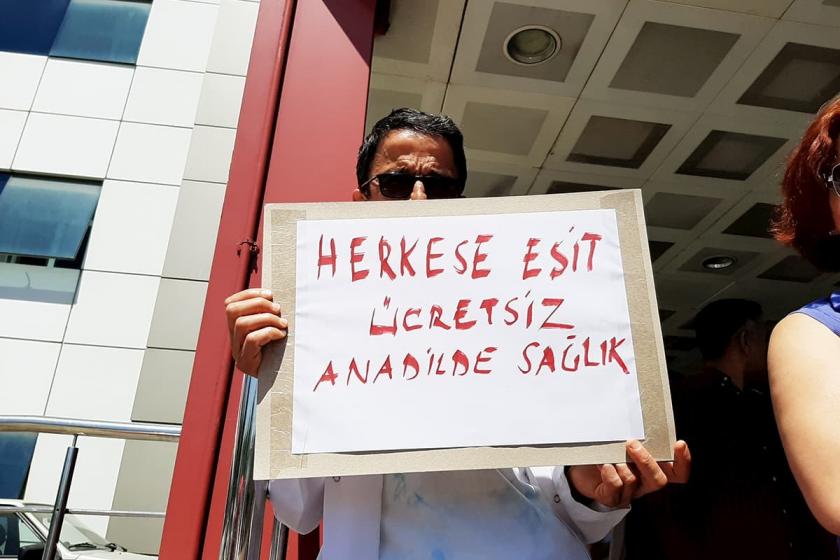 HERKESE EŞİT
ÜCRETSİZ
ANADİLDE SAĞLIK